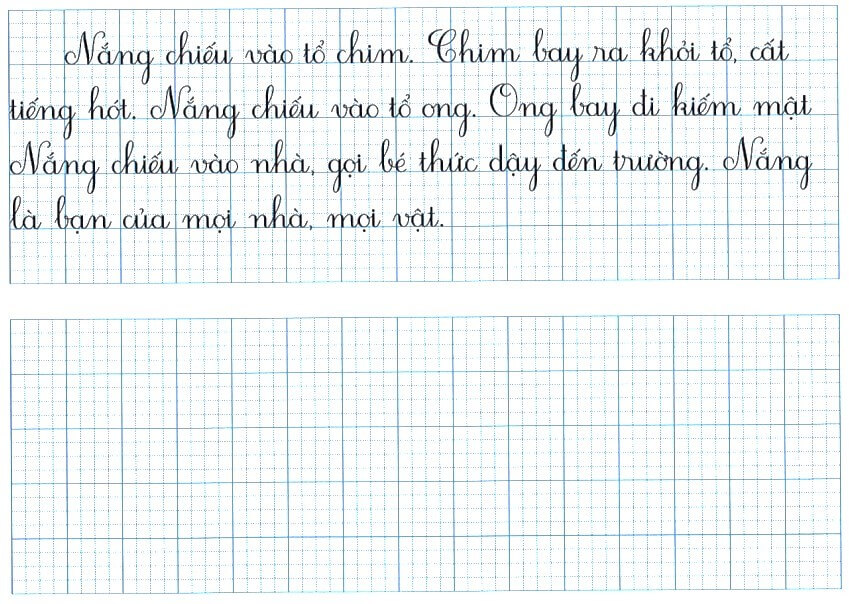 Nắng chiếu vào tổ chim. Chim bay ra khỏi tổ, cất
tiếng hót. Nắng chiếu vào tổ ong. Ong bay đi kiếm mật
Nắng chiếu vào nhà, gọi bé thức dậy đến trường. Nắng
là bạn của mọi nhà, mọi vật.